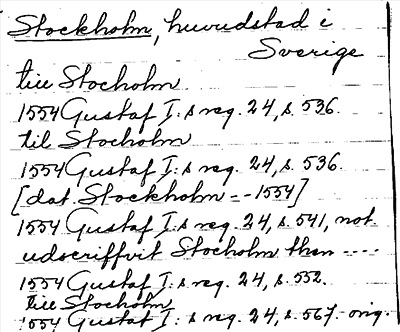 Stockholm, huvudstad i
Sverige
till Stocholm
1554 Gustaf I:s reg. 24, s. 536.
til Stocholm
1554 Gustaf I:s reg. 24, s. 536.
[dat. Stockholm -- 1554]
1554 Gustaf I:s reg. 24, s. 541, not.
udscriffvit Stocholm then ----
1554 Gustaf I:s reg. 24, s. 552.
till Stocholm
1554 Gustaf I:s reg. 24, s. 567. orig.